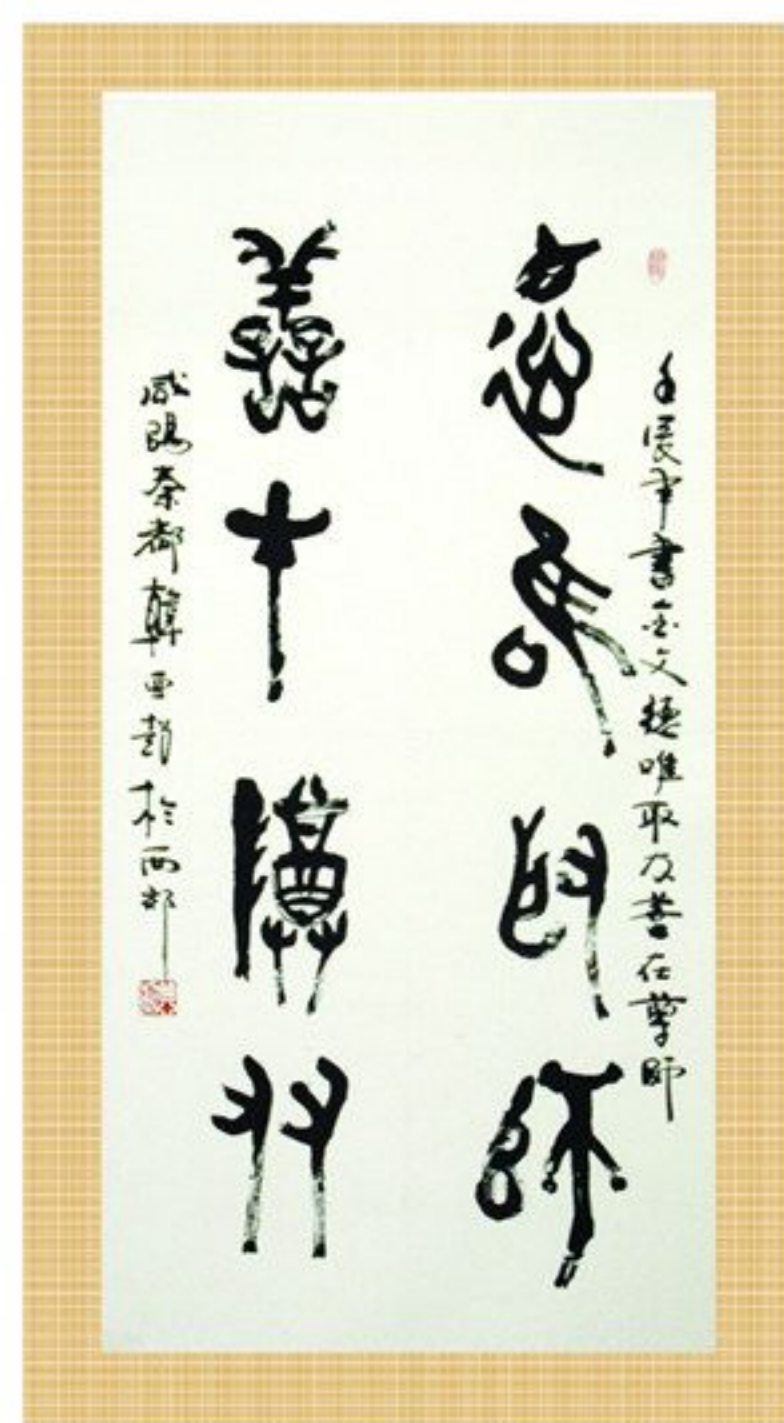 壬辰年書金文德唯取友善在尊師
德唯取師
善在尊友
咸陽秦都韓亞於西部